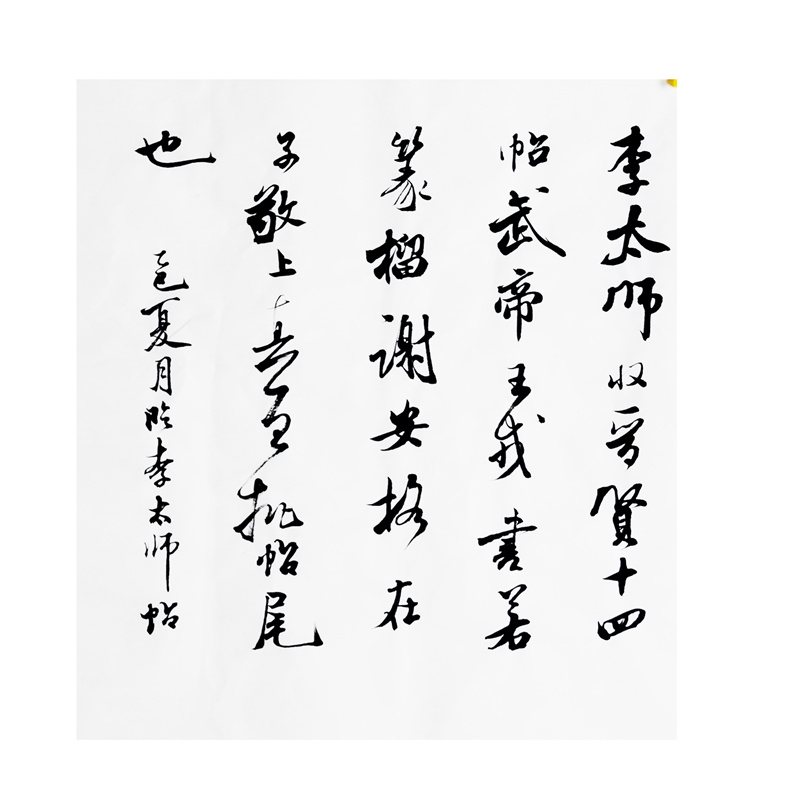 李太师收晉賢十四
帖武帝王戎書若
篆榴謝安格在
子敬上真宜批帖尾
也
乙巳夏月临李太师帖